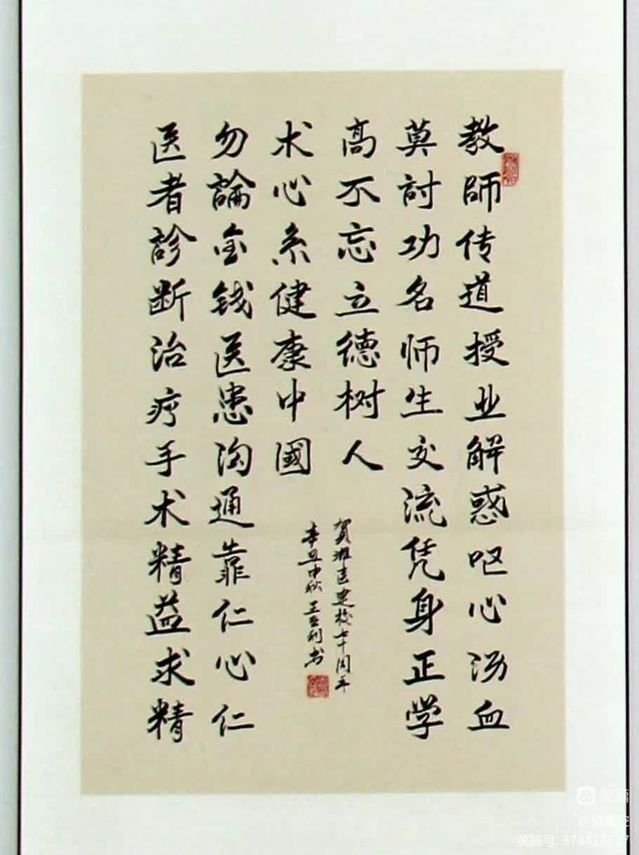 教師传道授业解惑呕心沥血
莫討功名师生交流凭身正学
高不忘立德树人
医者診断治疗手术精益求精
勿論金钱医患沟通靠仁心仁
术心系健康中國
賀潍医建校七十周年
辛丑中秋 王利书
美篇
美篇号: